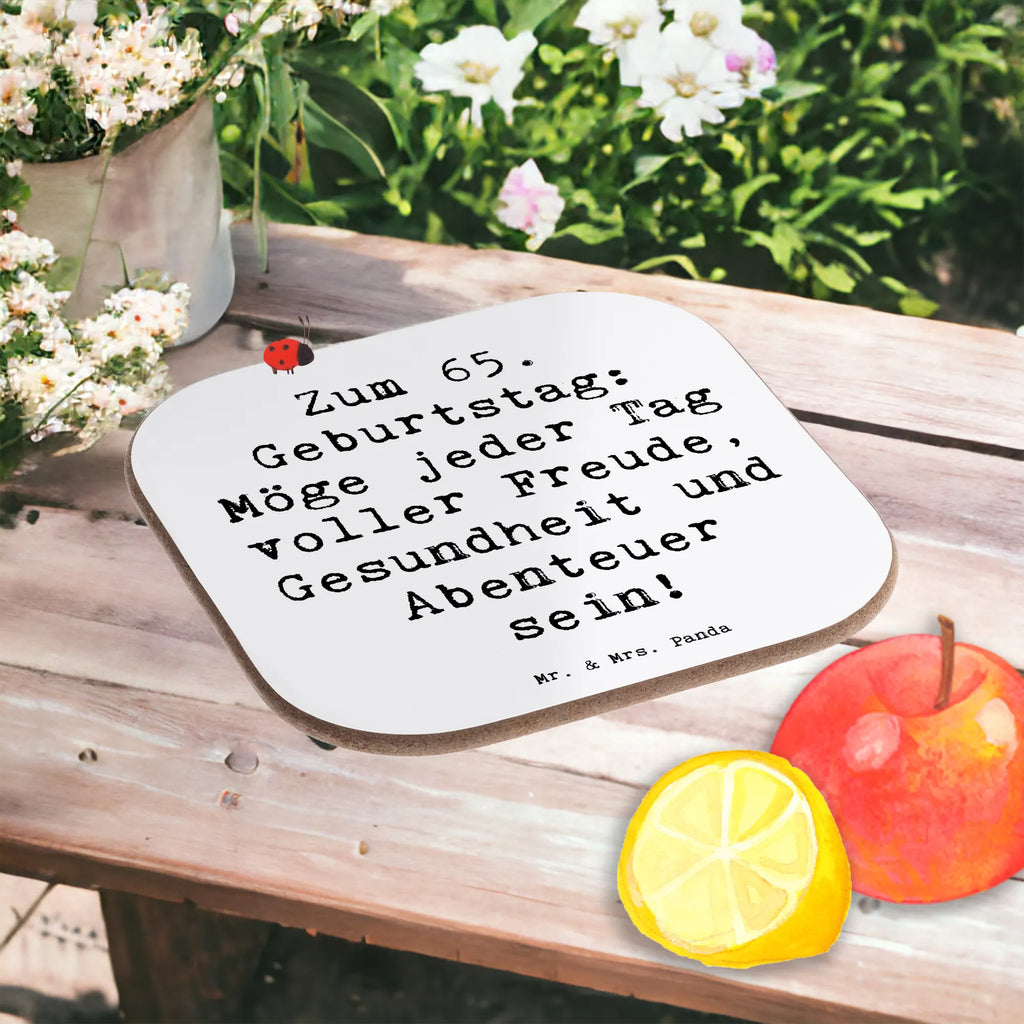 Zum 65.
Geburtstag:
Möge jeder Tag
voller Freude,
Gesundheit und
Abenteuer
sein!
Mr. & Mrs. Panda